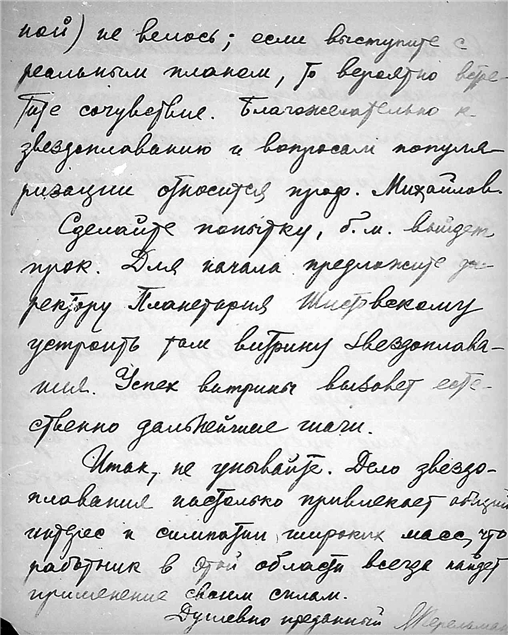 ной) не велось; если выступите с
реальным планом, то вероятно встре-
тите сочувствие. Благожелательно к
звездоплаванию и вопросам популя-
ризации относится проф. Михайлов.
Сделайте попытку, б.м. выйдет
прок. Для начала предложите ди-
ректору Планетария Шистовскому
устроить там витрину звездоплава-
ния. Успех витрины вызовет есте-
ственно дальнейшие шаги.
Итак, не унывайте. Дело звездо-
плавания настолько привлекает общий
интерес и симпатии широких масс, что
работник в этой области всегда найдет
применение своим силам.
Душевно преданный ЯПерельман